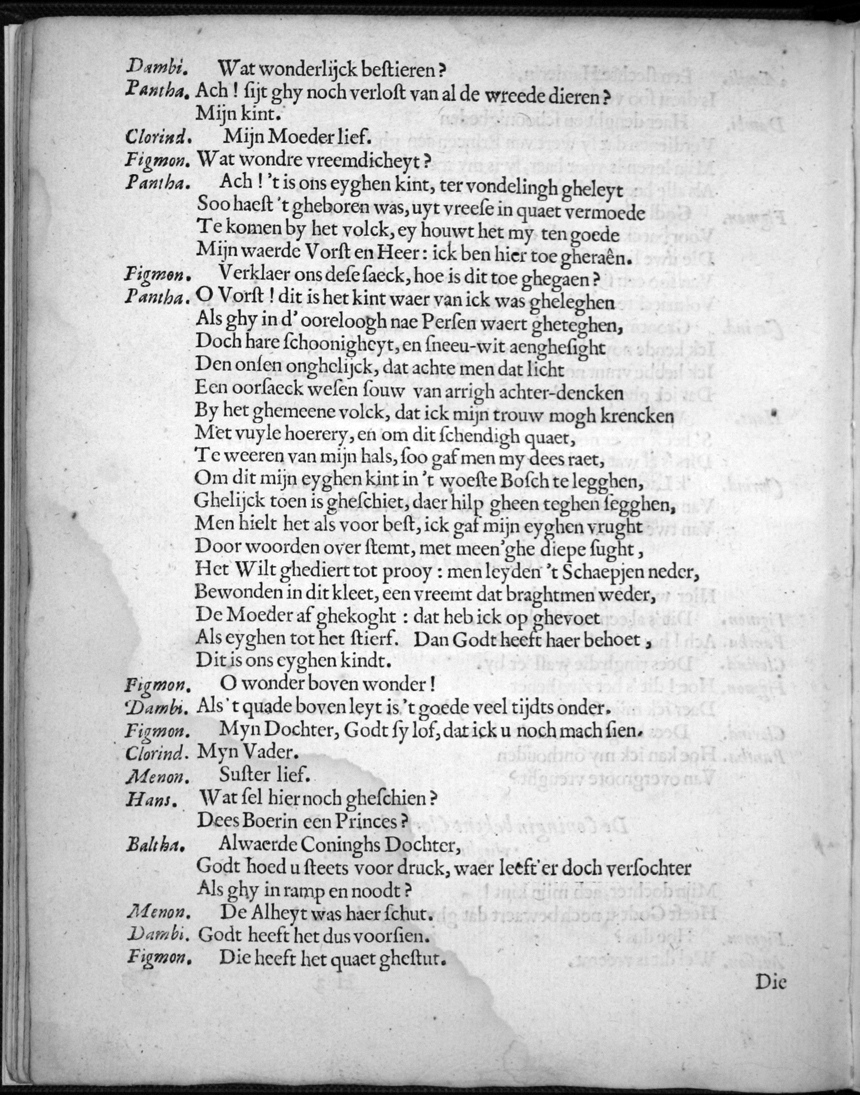 Dambi. Wat wonderlijck beſtieren?
Pantha. Ach! ſijt ghy noch verloſt van al de wreede dieren?
Mijn kint.
Clorind. Mijn Moeder lief.
Figmon. Wat wondre vreemdicheyt?
Pantha. Ach! 't is ons eyghen kint, ter vondelingh gheleyt
Soo haeſt 't gheboren was, uyt vreeſe in quaet vermoede
Te komen by het volck, ey houwt het my ten goede
Mijn waerde Vorſt en Heer: ick ben hier toe gheraên.
Figmon. Verklaer ons deſe ſaeck, hoe is dit toe ghegaen?
Pantha. O Vorſt! dit is het kint waer van ick was gheleghen
Als ghy in d' ooreloogh nae Perſen waert gheteghen,
Doch hare ſchoonigheyt, en ſneeu-wit aengheſight
Den onſen onghelijck, dat achte men dat licht
Een oorſaeck weſen ſouw van arrigh achter-dencken
By het ghemeene volck, dat ick mijn trouw mogh krencken
Met vuyle hoerery, en om dit ſchendigh quaet,
Te weeren van mijn hals, ſoo gaf men my dees raet,
Om dit mijn eyghen kint in 't woeſte Boſch te legghen,
Ghelijck toen is gheſchiet, daer hilp gheen teghen ſegghen,
Men hielt het als voor beſt, ick gaf mijn eyghen vrught
Door woorden over ſtemt, met meen'ghe diepe ſught,
Het Wilt ghediert tot prooy: men leyden 't Schaepjen neder,
Bewonden in dit kleet, een vreemt dat braghtmen weder,
De Moeder af ghekoght: dat heb ick op ghevoet
Als eyghen tot het ſtierf. Dan Godt heeft haer behoet,
Dit is ons eyghen kindt.
Figmon. O wonder boven wonder!
Dambi. Als 't quade boven leyt is 't goede veel tijdts onder.
Figmon. Myn Dochter, Godt ſy lof, dat ick u noch mach ſien.
Clorind. Myn Vader.
Menon. Suſter lief.
Hans. Wat ſel hier noch gheſchien?
Dees Boerin een Princes?
Baltha. Alwaerde Coninghs Dochter,
Godt hoed u ſteets voor druck, waer leeft'er doch verſochter
Als ghy in ramp en noodt?
Menon. De Alheyt was haer ſchut.
Dambi. Godt heeft het dus voorſien.
Figmon. Die heeft het quaet gheſtut.
Die